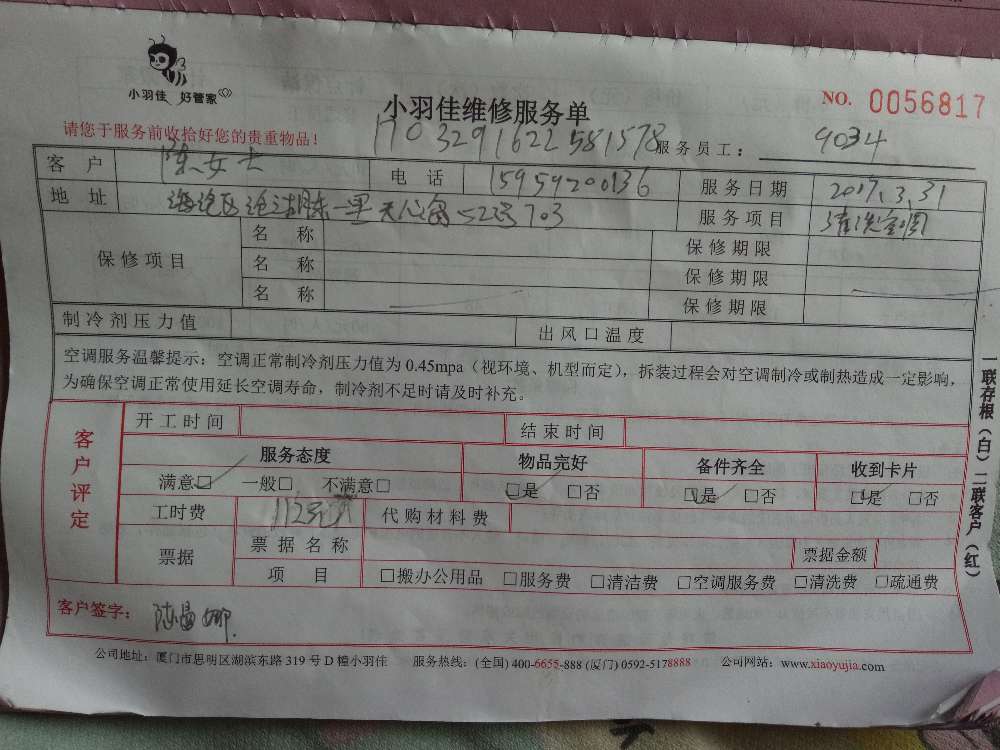 小羽佳 好管家
小羽佳维修服务单
NO. 0056817
请您于服务前收拾好您的贵重物品！
1703291622581578
服务员工： 9034
客户 陈女士 电话 15959200136 服务日期 2017.3.31
地址 海沧区沧湖东一里天心岛 523 703 服务项目 清洗空调
保修项目 名称 保修期限
名称 保修期限
名称 保修期限
制冷剂压力值 出风口温度
空调服务温馨提示：空调正常制冷剂压力值为 0.45mpa（视环境、机型而定），拆装过程会对空调制冷或制热造成一定影响，
为确保空调正常使用延长空调寿命，制冷剂不足时请及时补充。
客户评定
开工时间 结束时间
服务态度 物品完好 备件齐全 收到卡片
满意□ 一般□ 不满意□ □是 □否 □是 □否 □是 □否
工时费 112元 代购材料费
票据 票据名称 票据金额
项目 □搬办公用品 □服务费 □清洁费 □空调服务费 □清洗费 □疏通费
客户签字： 陈 娜
公司地址：厦门市思明区湖滨东路 319 号 D 幢小羽佳 服务热线：(全国) 400-6655-888 (厦门) 0592-5178888 公司网站：www.xiaoyujia.com
一联存根（白）二联客户（红）